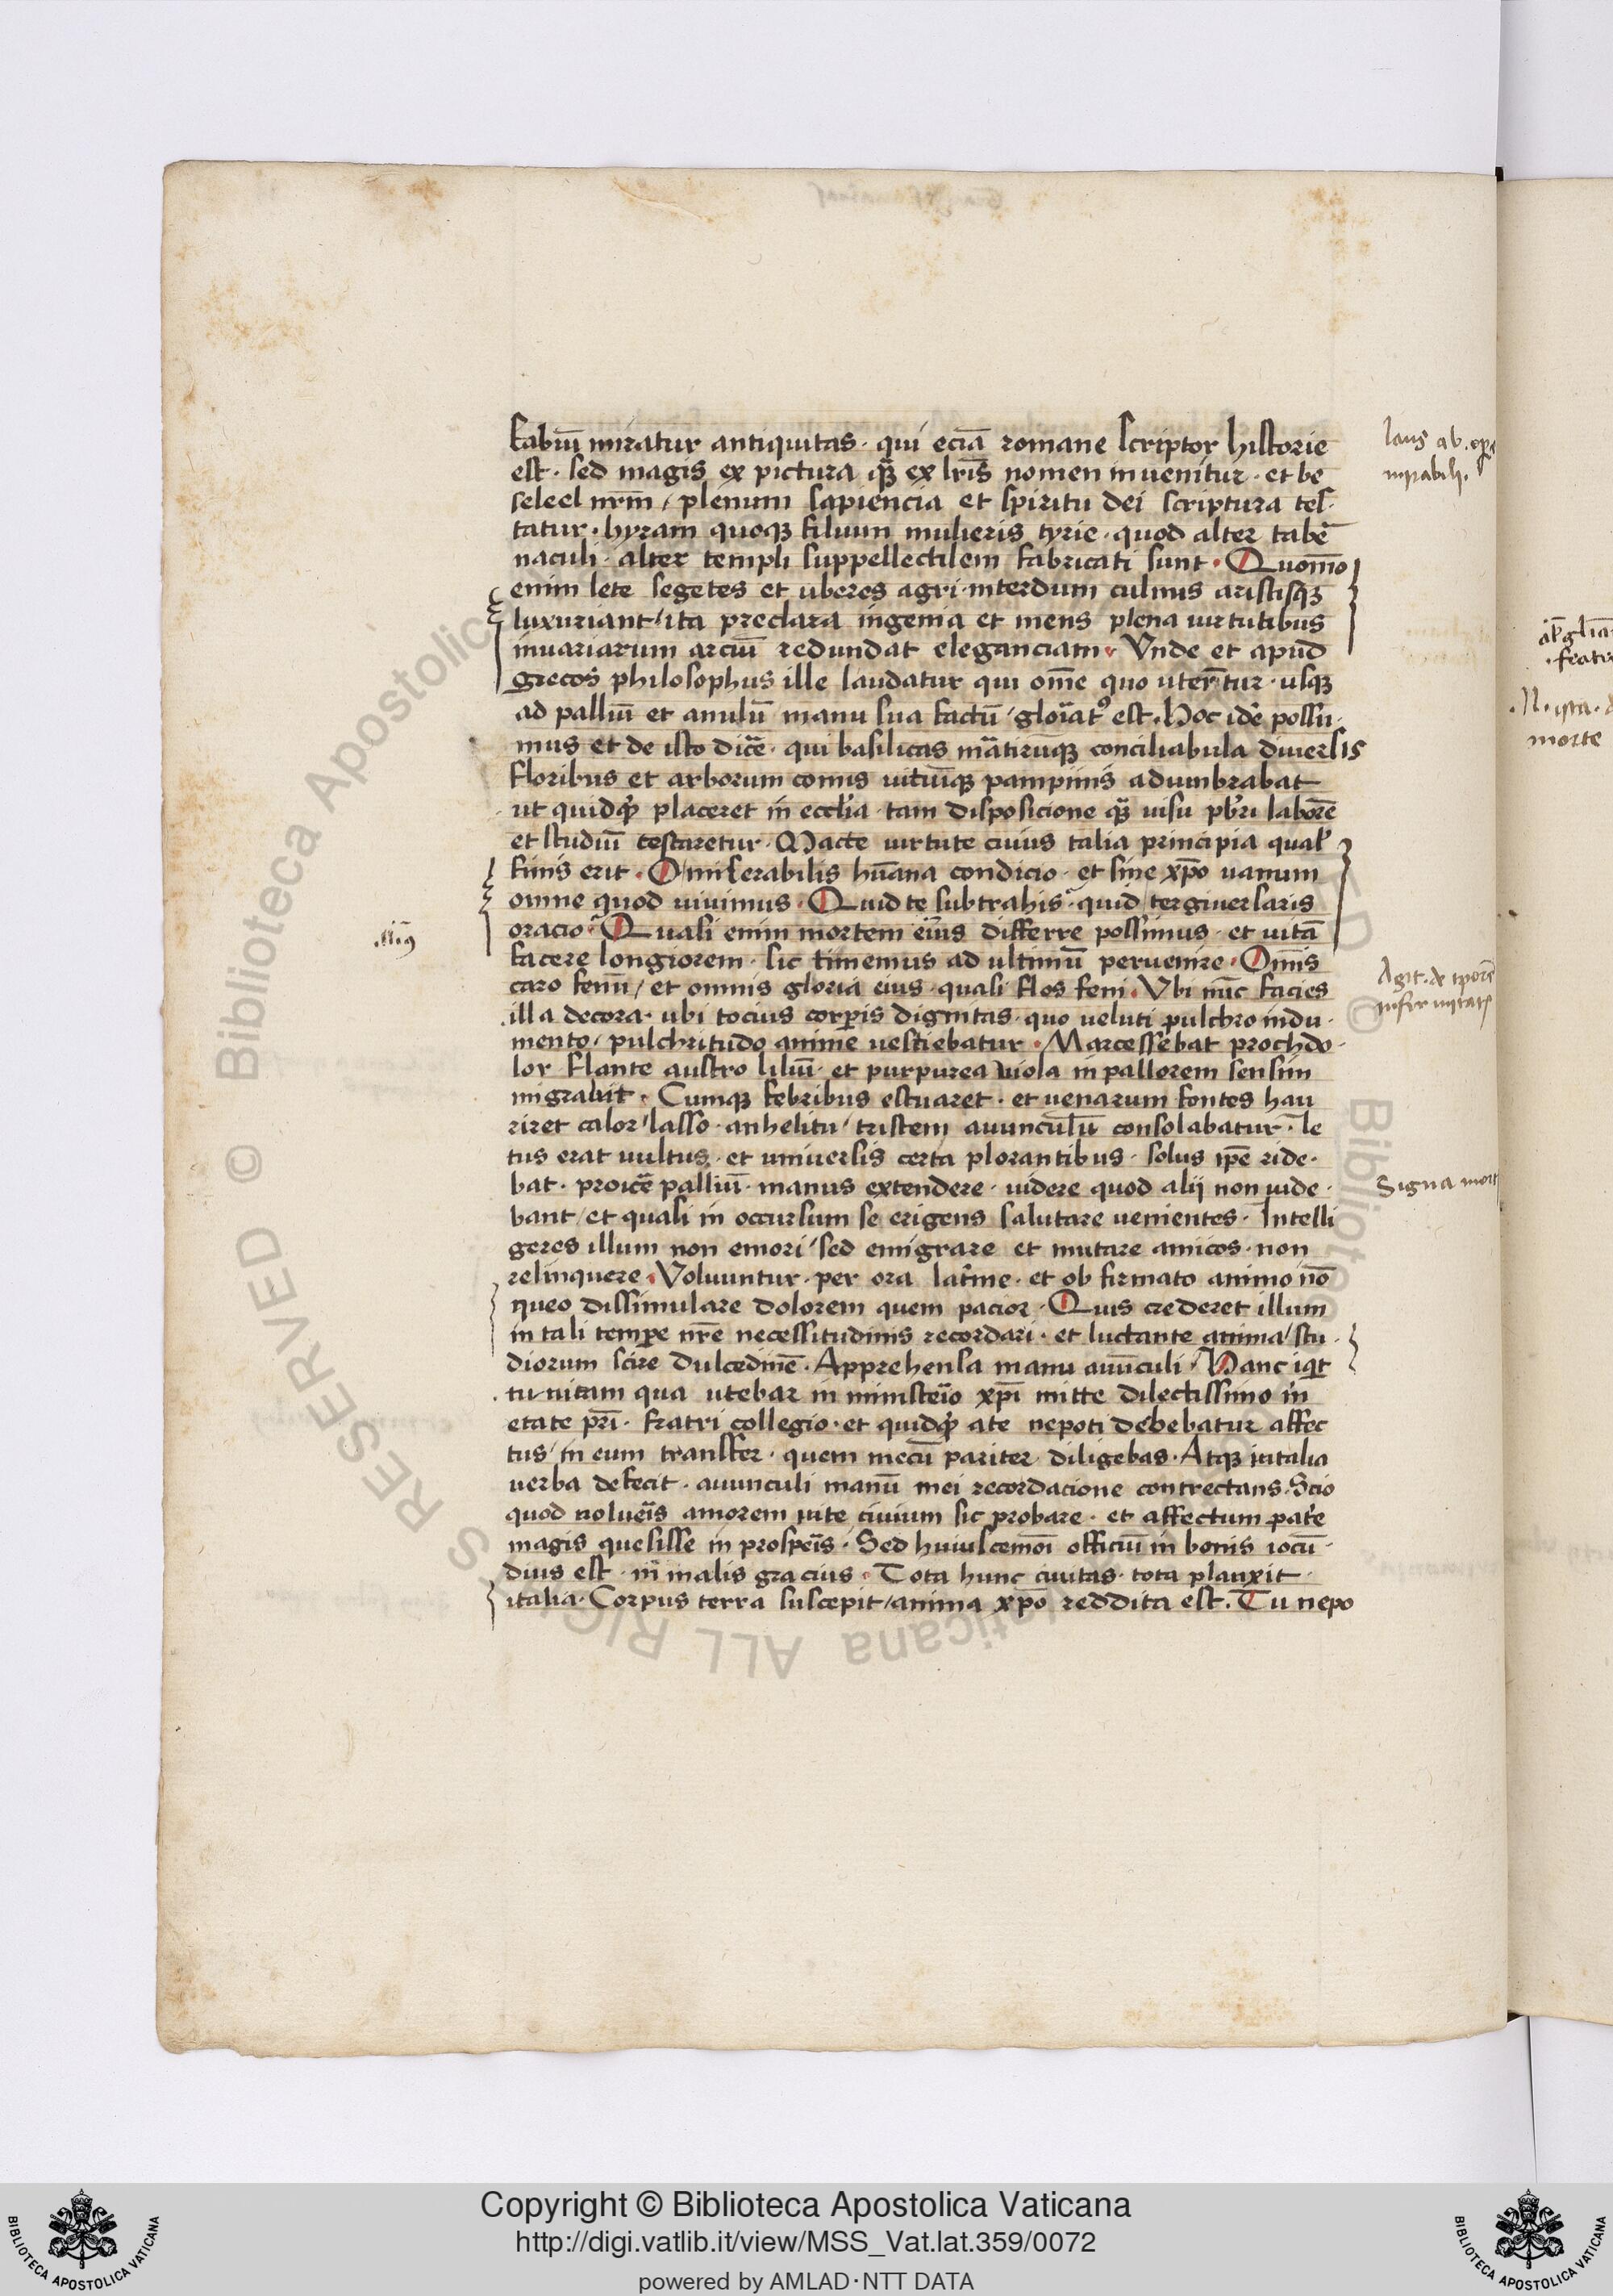 fabiū miratur antiquitas · qui eciā romane scriptor historie
est · sed magis ex pictura qȝ ex lrīs nomen inuenitur · et be
seleel nrm̄ / plenum sapiencia et spiritu dei scriptura tes·
tatur · hyram quoqȝ filium mulieris tyrie · quod alter tab̄e
naculi · alter templi suppellectilem fabricati sunt · Quom̄o
enim lete segetes et uberes agri · interdum culmis aristisqȝ
luxuriant / ita preclara ingenia et mens plena uirtutibus
inuariarum arciū redundat eleganciam · Vnde et apud
grecos philosophus ille laudatur qui om̄e quo uter̄tur · usqȝ
ad palliū et anulū manu sua factū / gloīatꝰ est · Hoc idē possu·
mus et de isto dic̄e · qui basilicas m̄atirūqȝ conciliabula diuersis
floribus et arborum comis uitiūqȝ pampinis adumbrabat
ut quidqȝ placeret in eccl̄ia · tam disposicione qȝ uisu pb̄ri labore̅
et studiū testaretur · Macte uirtute cuius talia principia qual'
finis erit · O miserabilis hūana condicio · et sine xp̄o uanum
omne quod uiuimus · Quid te subtrahis · quid tergiuersaris
oracio · Quasi enim mortem eīus differre possimus · et uitā
facere longiorem · sic timemus ad ultimū peruenire · Omīs
caro fenū / et omnis gloria eius · quasi flos feni · Vbi nūc facies
illa decora · ubi tocius corꝑis dignitas · quo ueluti pulchro indu·
mento / pulchritudo anime uestiebatur · Marcessebat prochdo·
lor flante austro liliū · et purpurea uiola in pallorem sensim
migrauit · Cumqȝ febribus estuaret · et uenarum fontes hau
riret calor / lasso · anhelitu / tristem auuncul̄u consolabatur · le
tus erat uultus · et uniuersis certa plorantibus · solus ip̄e ride·
bat · proic̄e palliū · manus extendere · uidere quod alij non uide·
bant / et quasi in occursum se erigens salutare uenientes · Intelli
geres illum non emori / sed emigrare et mutare amicos · non
relinquere · Voluuntur · per ora lac̄ime · et ob firmato animo nō
queo dissimulare dolorem quem pacior · Quis crederet illum
in tali temꝑe nr̄e necessitudinis recordari · et luctante anima / stu·
diorum scire dulcedinē · Apprehensa manu auūculi / Hanc iqt
tunicam qua utebar in ministeīo xp̄i mitte dilectissimo in
etate pr̄i · fratri collegio · et quidqȝ ate nepoti debebatur affec
tus / in eum transfer · quem mecū pariter diligebas · Atqȝ intalia
uerba defecit · auunculi manū mei recordacione contrectans · Scio
quod nolueīs amorem uite ciuium sic probare · et affectum pat̄e
magis quesisse in prosꝑeīs · Sed huiuscemoī officiū in bonis iocū·
dius est · in̄ malis gracius · Tota hunc ciuitas · tota planxit ·
italia · Corpus terra suscepit / anima xp̄o reddita est · Tu nepo
laus ab · oꝑe
mirabili ·
Agit · de tp̄ore
infirmitatis
Signa mort
· N · ista · d
morte
Copyright © Biblioteca Apostolica Vaticana
http://digi.vatlib.it/view/MSS_Vat.lat.359/0072
powered by AMLAD·NTT DATA
BIBLIOTECA APOSTOLICA VATICANA
BIBLIOTECA APOSTOLICA VATICANA